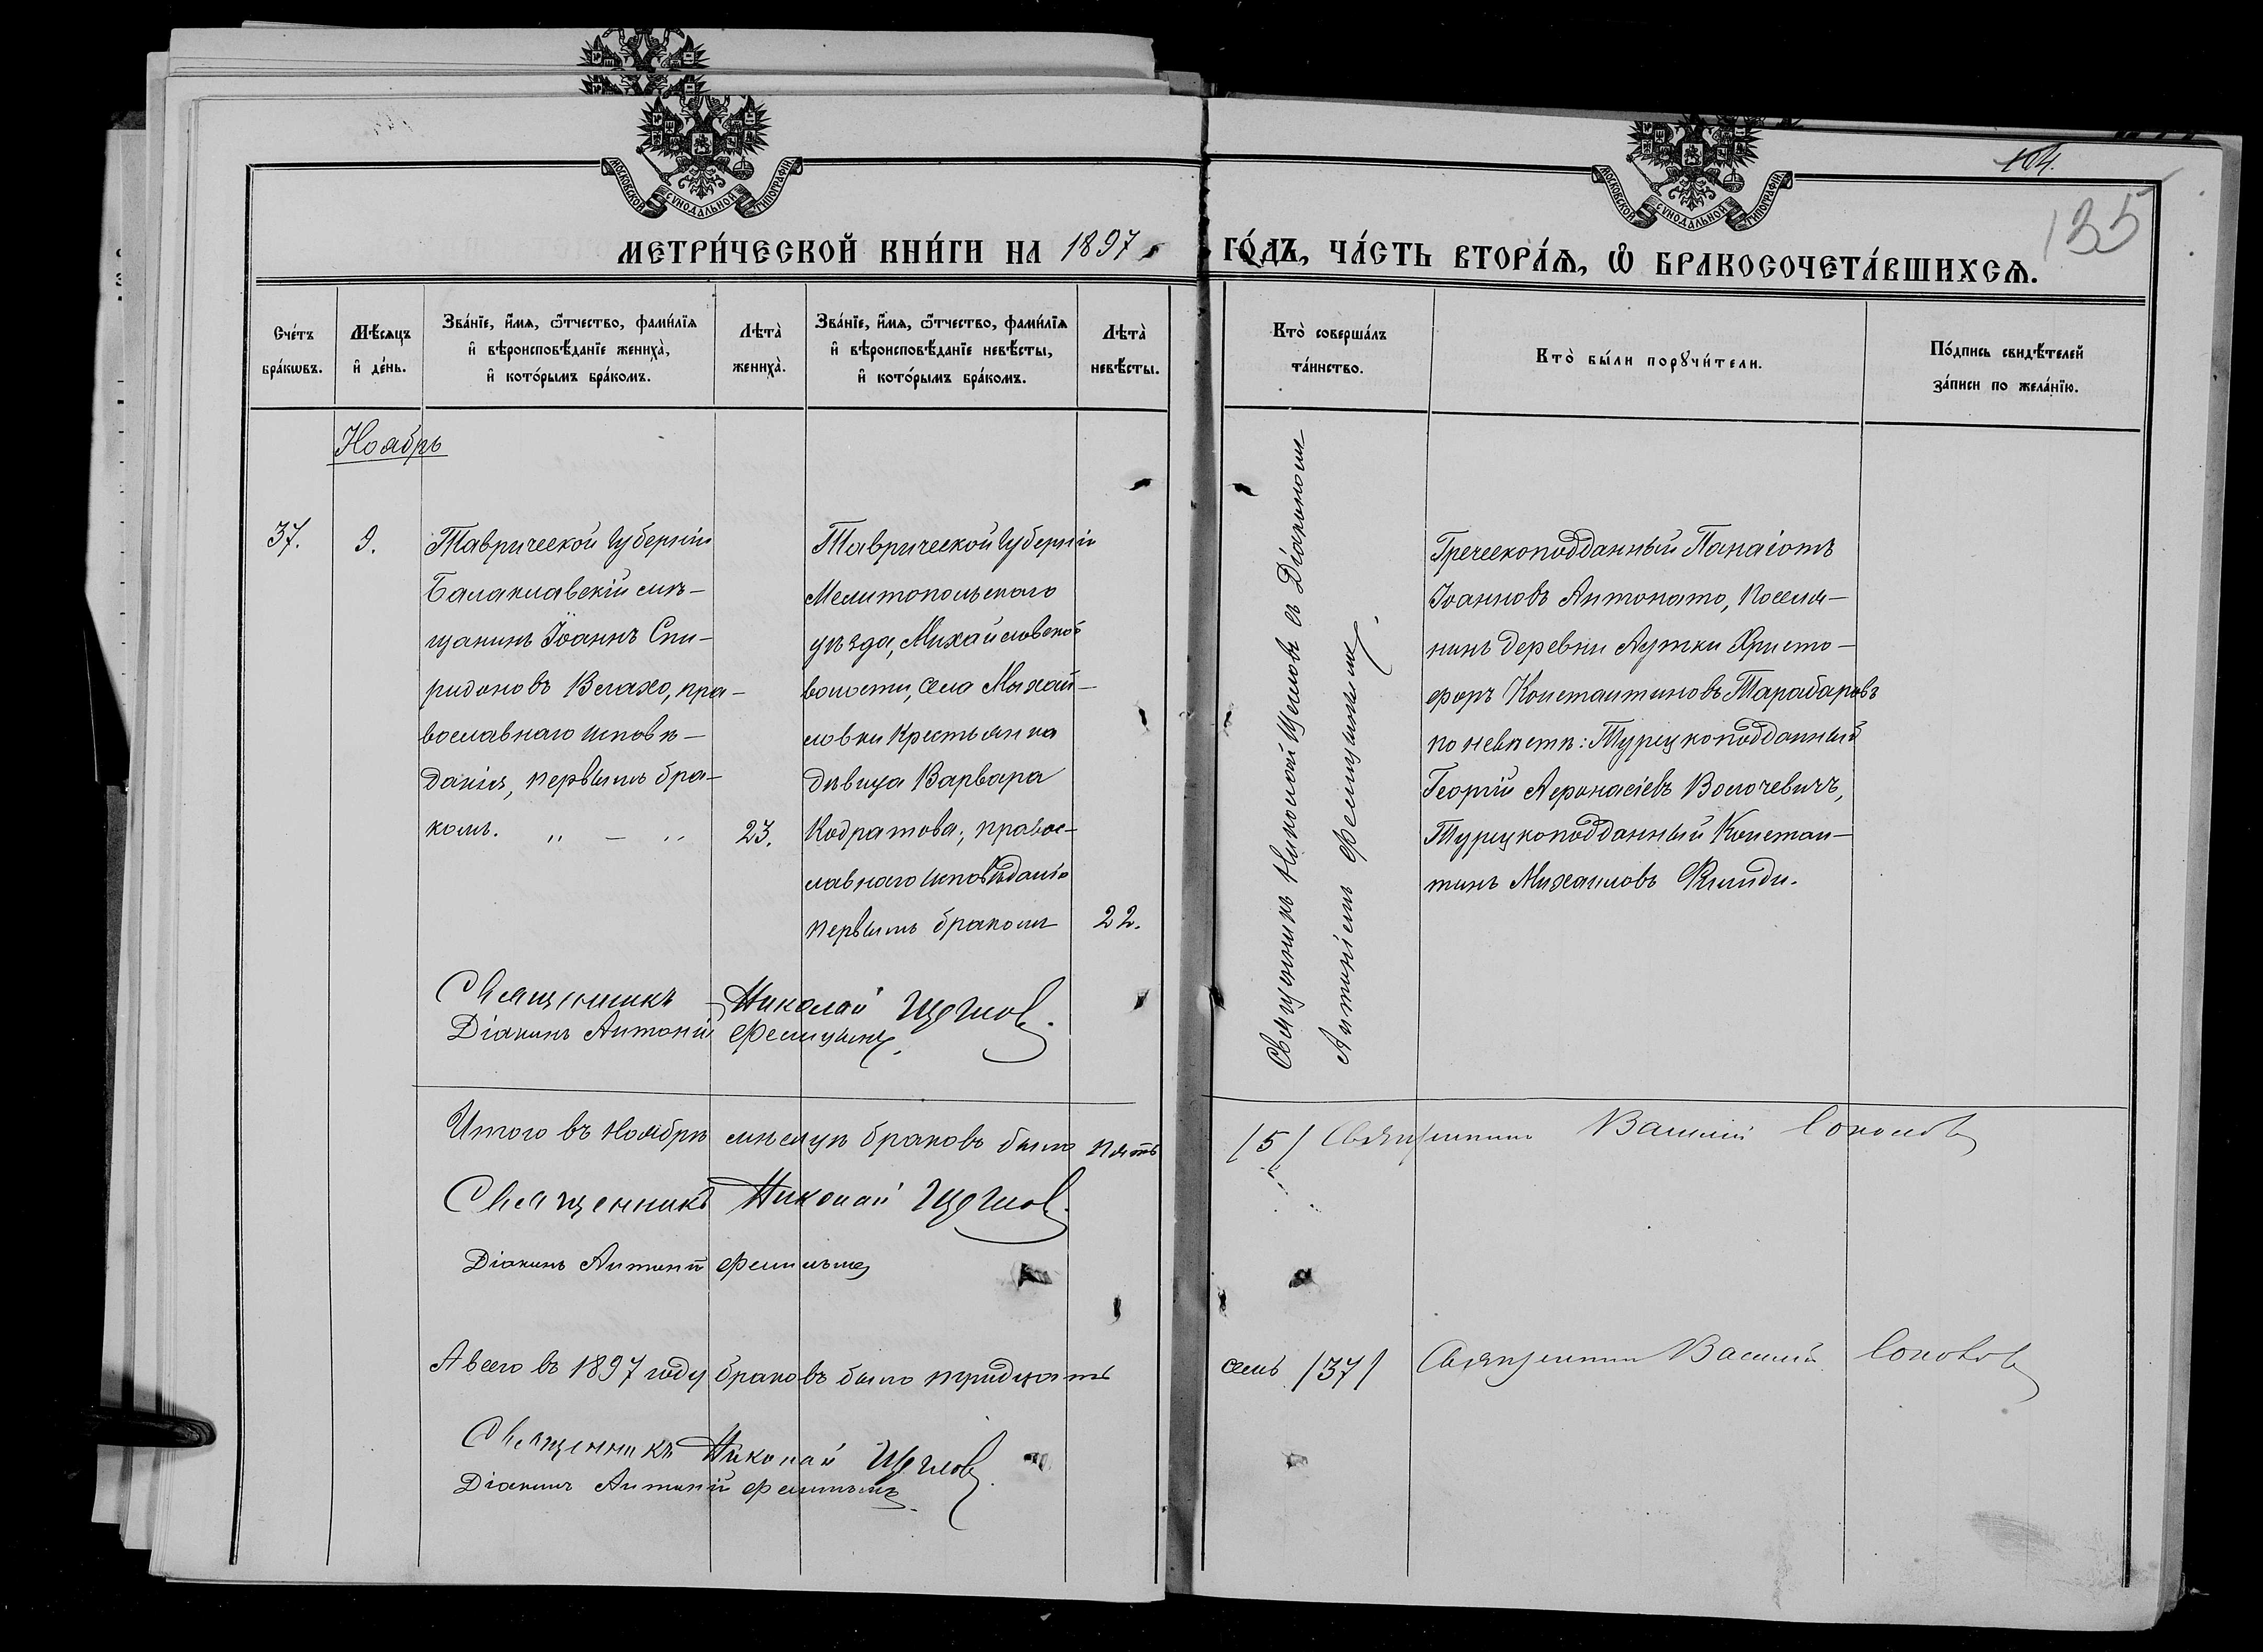 МОСКОВСКОЙ СѴНОДАЛЬНОЙ ТИПОГРАФІИ
МОСКОВСКОЙ СѴНОДАЛЬНОЙ ТИПОГРАФІИ
104.
135
МЕТРИ́ЧЕСКОЙ КНИ́ГИ НА 1897 ГО́ДЪ, ЧА́СТЬ ВТОРА́Ѧ, Ѽ БРАКОСОЧЕТА́ВШИХСѦ.
Сче́тъ бра́кѡвъ.
Мѣ́сѧцъ и҆ де́нь.
Зва́нїе, и҆́мѧ, ѻ҆́тчество, фами́лїѧ
и҆ вѣроисповѣ́данїе жениха̀,
и҆ кото́рымъ бра́комъ.
Лѣта̀ жениха̀.
Зва́нїе, и҆́мѧ, ѻ҆́тчество, фами́лїѧ
и҆ вѣроисповѣ́данїе невѣ́сты,
и҆ кото́рымъ бра́комъ.
Лѣта̀ невѣ́сты.
Кто̀ соверша́лъ та́инство.
Кто̀ бы́ли порꙋчи́тели.
По́дпись свидѣ́телей
за́писи по жела́нїю.
Ноябрь
37.
9.
Таврической Губерніи
Балаклавскій мѣ-
щанинъ Іоаннъ Спи-
ридоновъ Влахо, пра-
вославнаго исповѣ-
данія, первымъ бра-
комъ. „ — „
23.
Таврической Губерніи
Мелитопольскаго
уѣзда, Михайловской
волости, села Михай-
ловки крестьянка
дѣвица Варвара
Кодратова, правос-
лавнаго исповѣданія
первымъ бракомъ
22.
Священникъ Николай Щегловъ съ Діакономъ
Антоніемъ
Греческоподданный Панаіотъ
Іоанновъ Антопато, посели-
нинъ деревни Аутки Христо-
форъ Константиновъ Тарабаровъ
по невѣстѣ: Турецкоподданный
Георгій Афонасіевъ Волочевичъ,
Турецкоподданный Констан-
тинъ Михаиловъ
Священникъ Николай Щегловъ.
Діаконъ Антоній
Итого въ Ноябрѣ мѣсяцѣ браковъ было пять /5/ Священникъ Василій Соколовъ
Священникъ Николай Щегловъ.
Діаконъ Антоній
А всего въ 1897 году браковъ было тридцать семь /37/ Священникъ Василій Соколовъ
Священникъ Николай Щегловъ.
Діаконъ Антоній